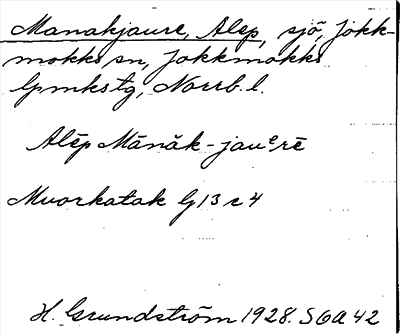 Manakjaure, Alep, sjö, Jokk-
mokks sn, Jokkmokks
lpmkstg, Norrb. l.
Alēp Mānăk-jauᵉrē
Muorkatak G13 c4
H. Grundström 1928. S6A42